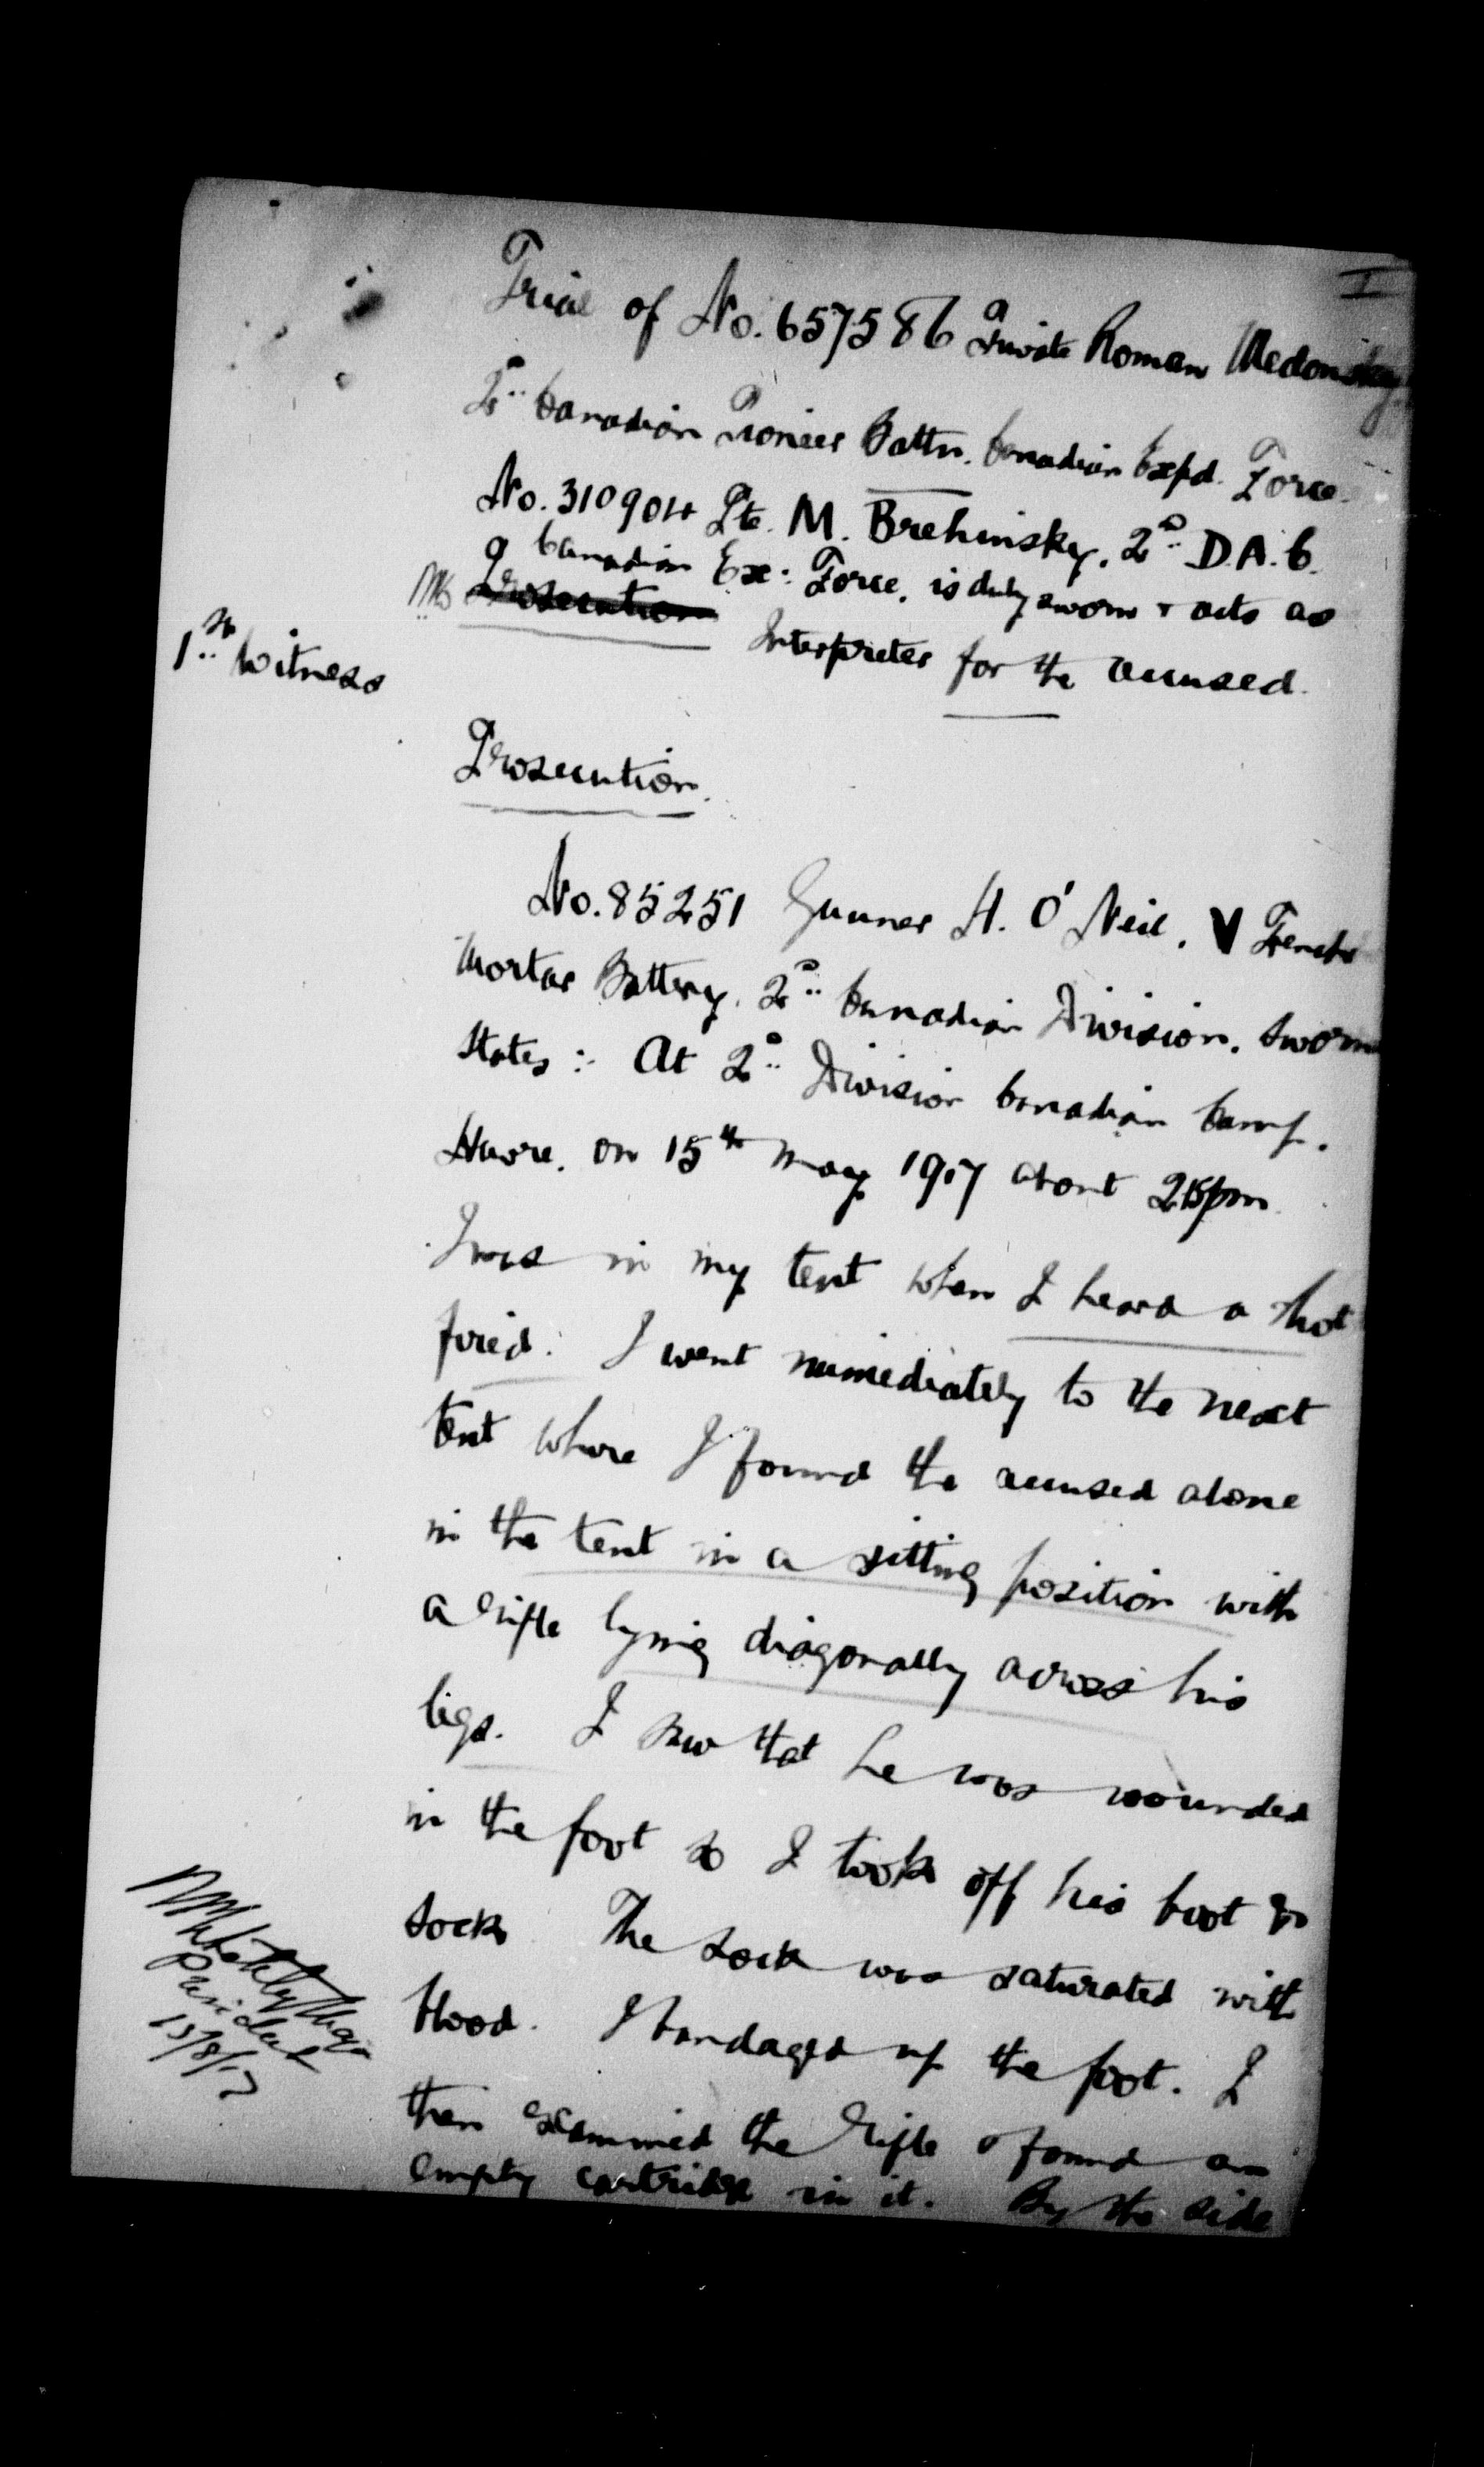 I
Trial of No. 657586 Private Roman
2nd Canadian Pioneer Battn. Canadian Expd. Force.
No. 310904 Pte. M. Brehinsky, 2nd D.A.C.
Canadian Ex: Force, is duly sworn & acts as
Prosecution Interpreter for the accused.
1st Witness
Prosecution.
No. 85251 Gunner H. O'Neil, V Trench
Mortar Battery, 2nd Canadian Division, sworn
states :- At 2nd Division Canadian Camp,
Havre, on 15th May 1917 about 2.15pm
I was in my tent when I heard a shot
fired. I went immediately to the next
tent where I found the accused alone
in the tent in a sitting position with
a rifle lying diagonally across his
legs. I saw that he was wounded
in the foot so I took off his boot &
sock. The sock was saturated with
blood. I bandaged up the foot. I
then examined the rifle & found an
empty cartridge in it. By the side
President